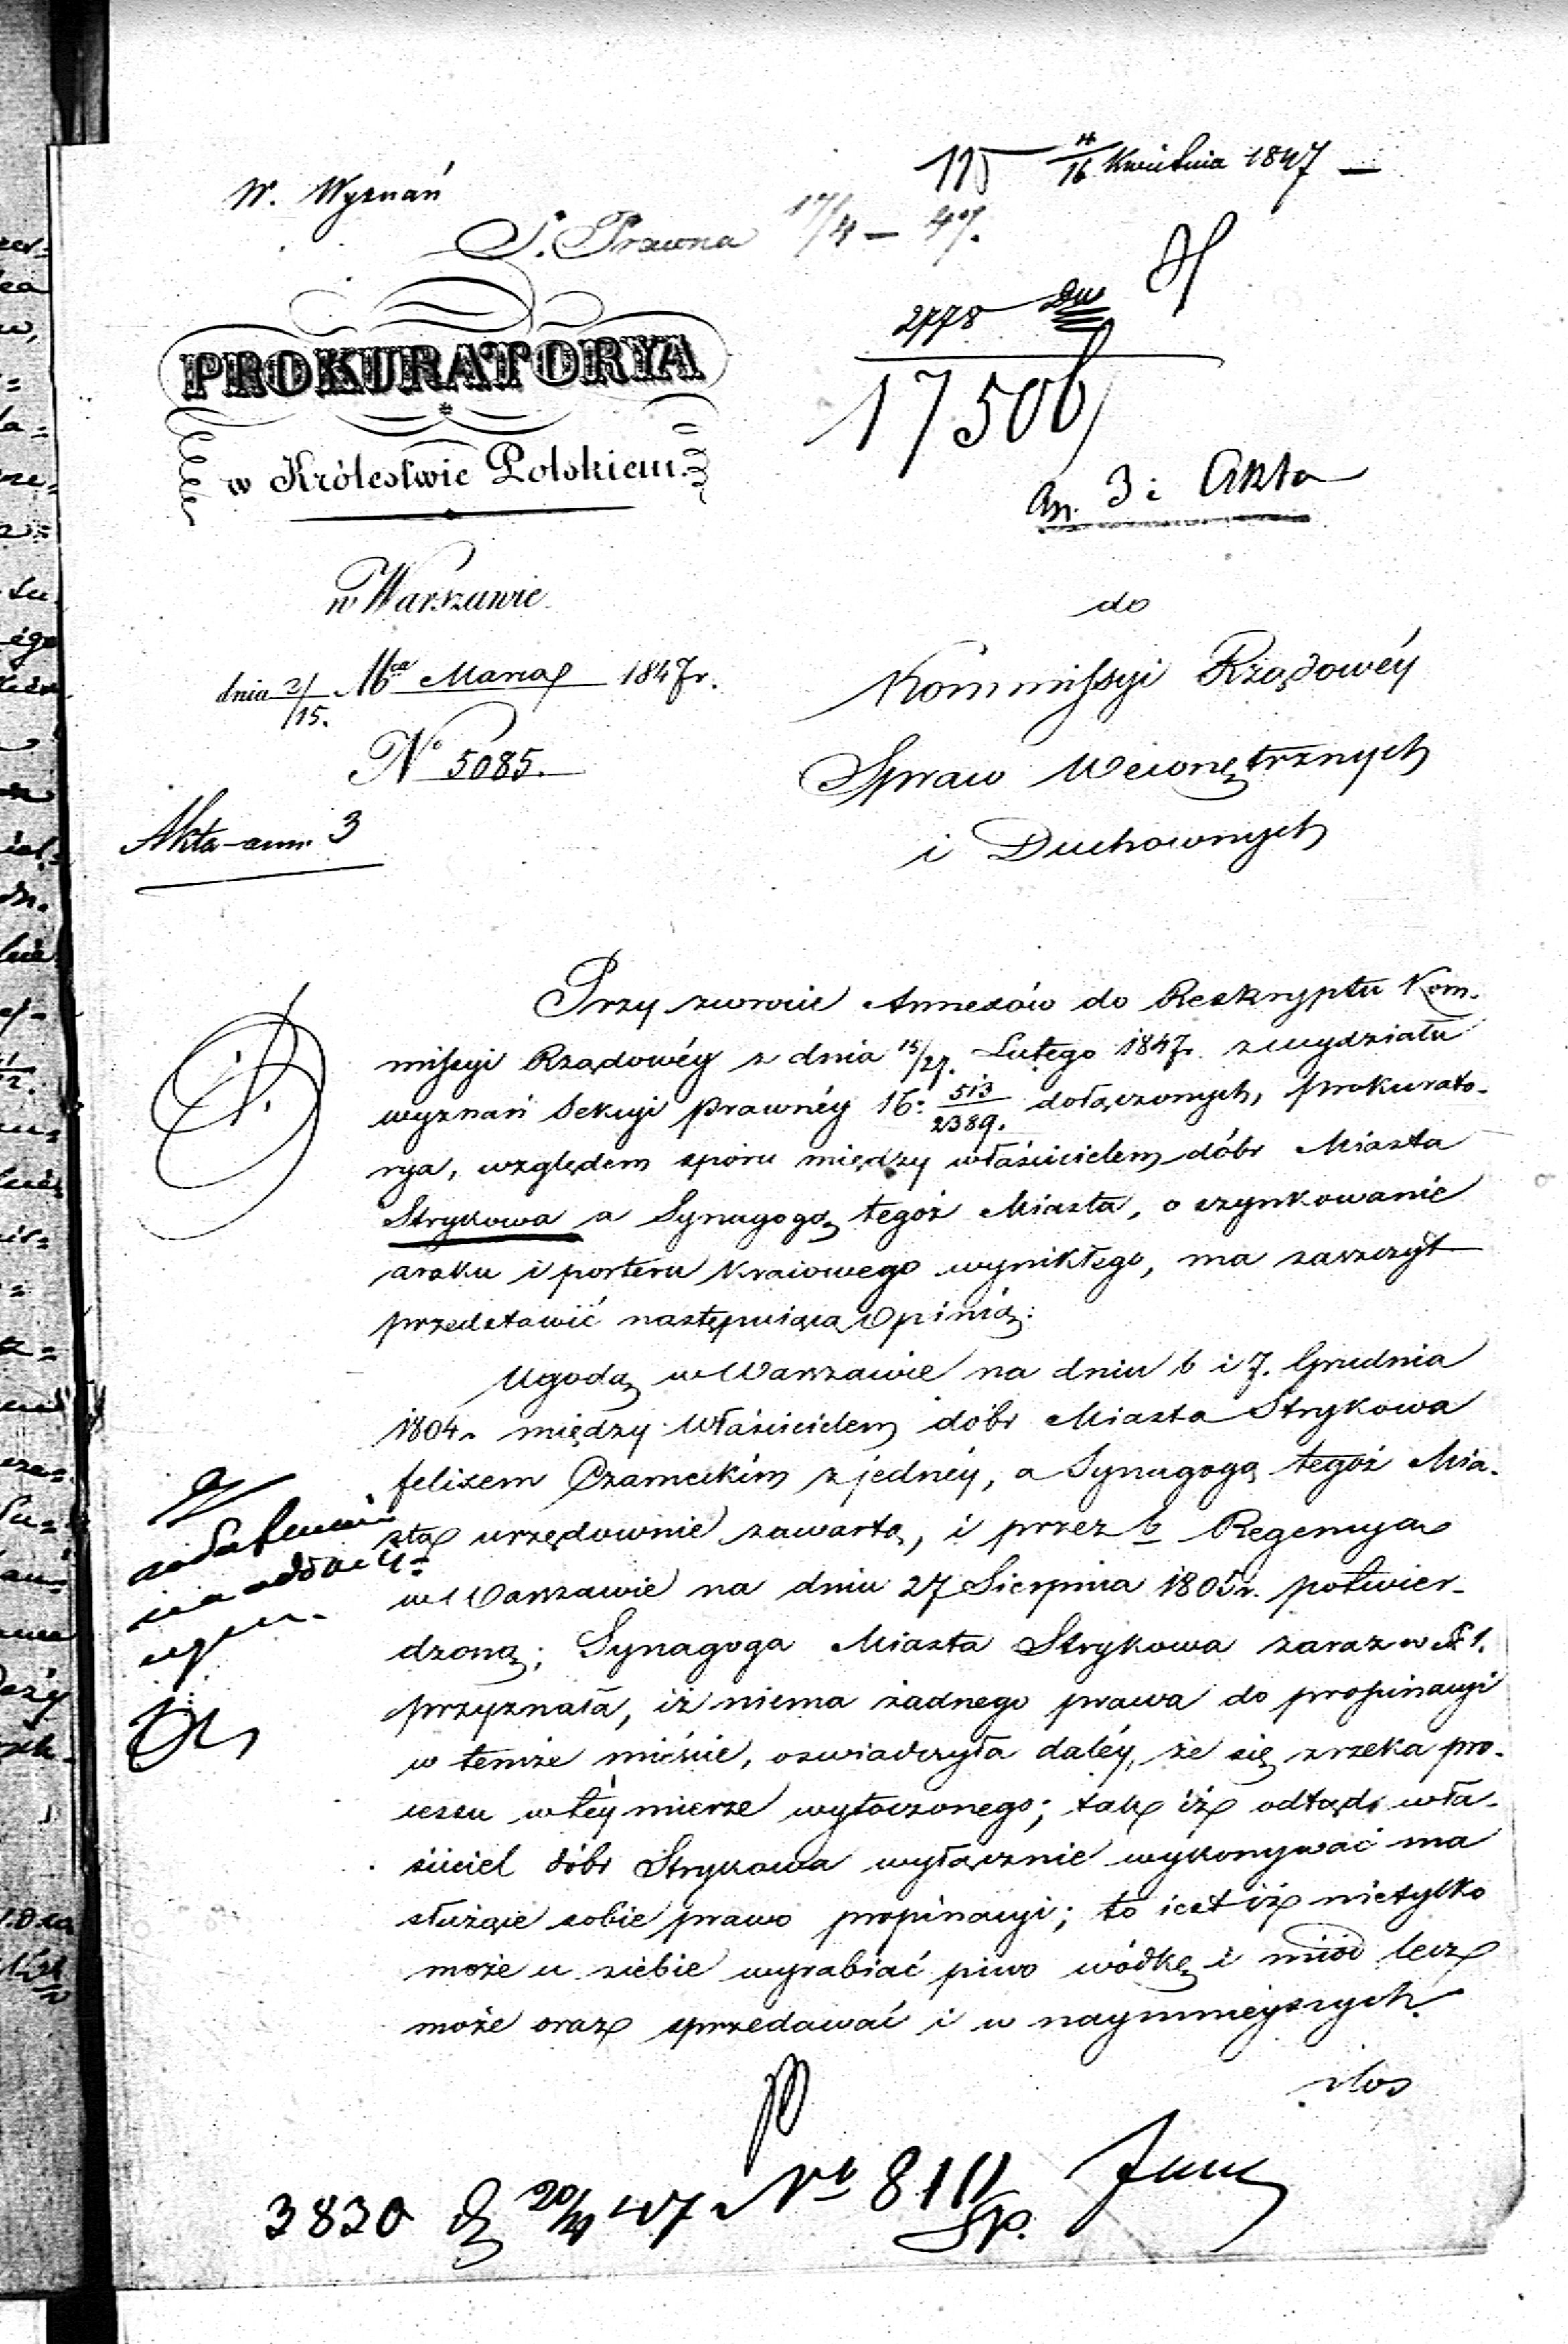 W. Wyznań
4/16 Kwietnia 1847
S. Prawna 17/4 – 47.
2778
17506
An. 3: Akta
PROKURATORYA
w Królestwie Polskiem.
w Warszawie.
dnia 3/15. Mca Marca 1847 r.
No 5085.
Akta – ann. 3
do
Kommissyi Rządowéy
Spraw Wewnętrznych
i Duchownych
Przy zwrocie Annexów do Reskryptu Kom-
missyi Rządowéy z dnia 15/27. Lutego 1847 r. z wydziału
wyznań Sekcyi Prawnéy 16: 513/2389. dołączonych, Prokurato-
rya, względem sporu między właścicielem dóbr Miasta
Strykowa a Synagogą tegoż Miasta, o szynkowanie
araku i porteru kraiowego wynikłego, ma zaszczyt
przedstawić następuiącą Opinią:
Ugodą w Warszawie na dniu 6 i 7. Grudnia
1804 r. między Właścicielem dóbr Miasta Strykowa
Felixem Czarneckim z jednéy, a Synagogą tegoż Mia-
sta urzędownie zawartą, i przez b Regencyą
w Warszawie na dniu 27 Sierpnia 1805 r. potwier-
dzoną; Synagoga Miasta Strykowa zaraz w § 1.
przyznała, iż niema żadnego prawa do propinacyi
w temże mieście, oswiadczyła daléy, że się zrzeka pro-
cessu w téy mierze wytoczonego; tak iż odtąd wła-
ściciel dóbr Strykowa wyłącznie wykonywać ma
służące sobie prawo propinacyi; to iest iż nietylko
może u siebie wyrabiać piwo wódkę i miód lecz
może oraz sprzedawać i w naymnieyszych
ilos
3830 20/4 47 No 810
Sp.